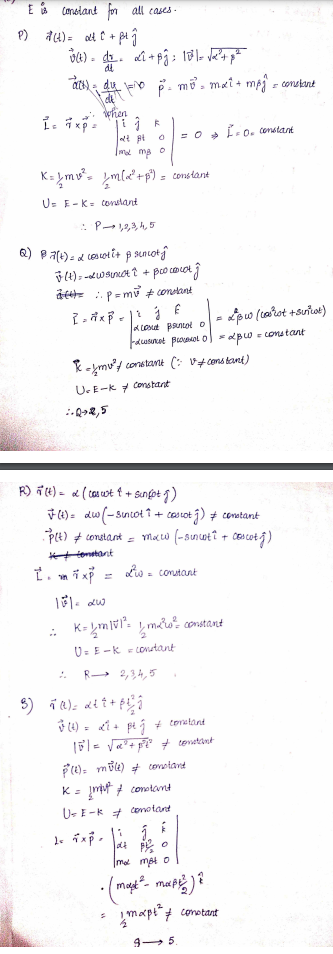 E is constant for all cases.
P) r⃗(t) = αt î + βt ĵ
v⃗(t) = dr/dt = αî + βĵ ; |v⃗| = √α²+β²
a⃗(t) = dv/dt = 0 p⃗ = mv⃗ = mαî + mβĵ = constant
when
L⃗ = r⃗ × p⃗ = | i ĵ k
αt βt 0
mα mβ 0 | = 0 ⇒ L⃗ = 0 = constant
K = ½mv² = ½m(α²+β²) = constant
U = E - K = constant
∴ P → 1,2,3,4,5
Q) r⃗(t) = α cosωt î + β sinωt ĵ
v⃗(t) = -αω sinωt î + βω cosωt ĵ
a⃗(t) = ∴ P = mv⃗ ≠ constant
L⃗ = r⃗ × p⃗ = | i ĵ k̂
α cosωt β sinωt 0 | = αβω (cos²ωt + sin²ωt)
-αω sinωt βω cosωt 0 | = αβω = constant
K = ½mv² ≠ constant (∵ v ≠ constant)
U = E - K ≠ constant
∴ Q → 2,5
R) r⃗(t) = α (cosωt î + sinωt ĵ)
v⃗(t) = αω (-sinωt î + cosωt ĵ) ≠ constant
p⃗(t) ≠ constant = mαω (-sinωt î + cosωt ĵ)
K ≠ constant
L⃗ = m r⃗ × p⃗ = α²ω = constant
|v⃗| = αω
∴ K = ½m|v⃗|² = ½mα²ω² = constant
U = E - K = constant
∴ R → 2,3,4,5
S) r⃗(t) = αt î + βt²/2 ĵ
v⃗(t) = αî + βt ĵ ≠ constant
|v⃗| = √α²+β²t² ≠ constant
p⃗(t) = mv⃗(t) ≠ constant
K = ½mv² ≠ constant
U = E - K ≠ constant
L = r⃗ × p⃗ = | i ĵ k̂
αt βt²/2 0
mα mβt 0 |
(mαβt² - mαβt²/2) k̂
= ½mαβt² ≠ constant
S → 5.